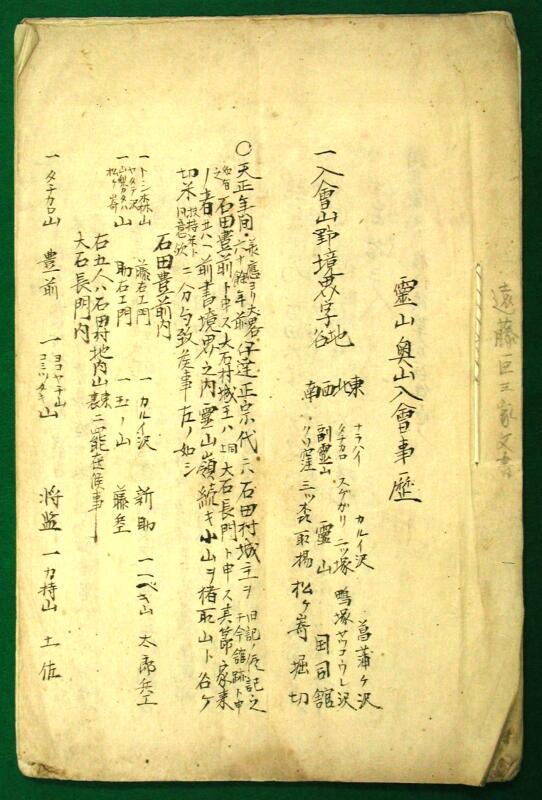 遠藤巨三家文書
霊山奥山入會事歴
一入會山野境界字地谷
東 カルイ沢 菖蒲ヶ沢
北 ナラハイ スゲガリ 二ッ塚 鴨塚
西 タチカロ 副霊山 霊山 田司館
南 クリ窪 三ッ森 取揚 松ヶ嵜 堀切
〇天正年間 六十餘年前 伊達正宗代ニハ石田村城主ヲ
石田豊前ト申ス大石村城主ハ大石長門ト申ス其節家来
ノ者共ハ前書境界之内霊山嶺続キ小山ヲ
切米 扶持米 ニ分与致候事左ノ如シ
石田豊前内
一トンニ森山 藤右エ門 一カルイ沢 新助 一一べき山 太郎兵エ
一 松ヶ嵜山 助右エ門 一玉ノ山 藤兵エ
右五人ハ石田村地内山
大石長門内
一タチカロ山 豊前 一ヨコヤチ山 将監 一カ持山 土佐